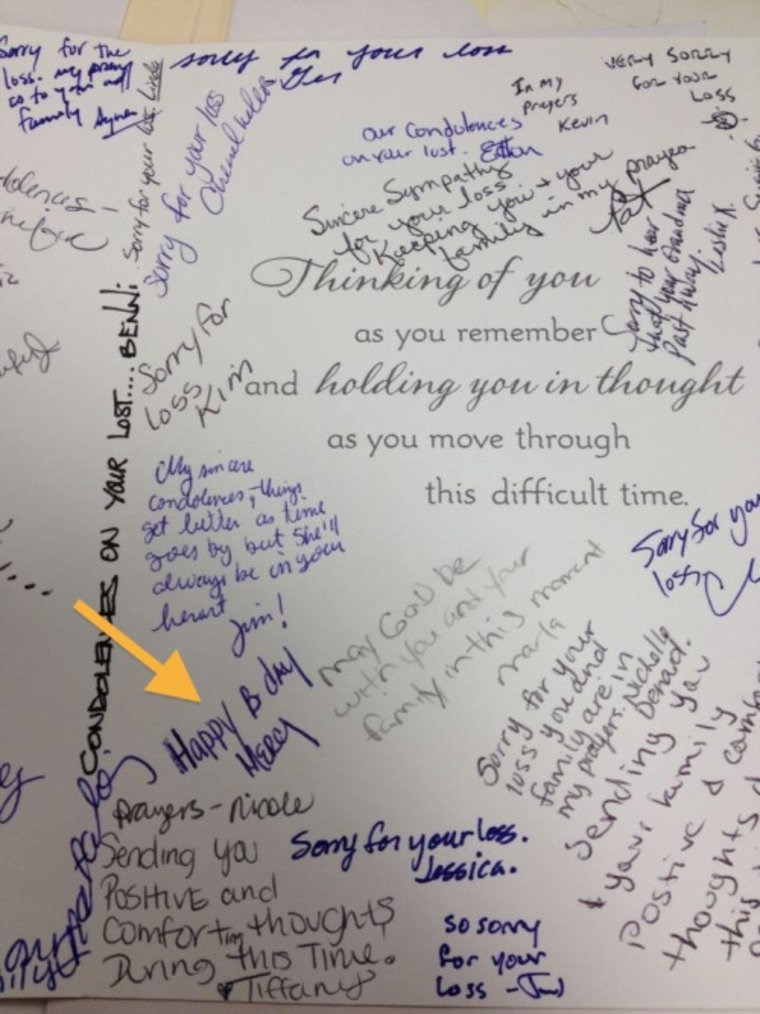 Sorry for the
loss. my prayers
go to you and
family Agnes
Sorry for your loss Linda
sorry for your loss
Sorry for your loss
In my
prayers
Kevin
VERY SORRY
FOR YOUR
LOSS
our Condolences
on your lost.
Sincere Sympathy
for your loss
Keeping you & your
family in my prayers
Pat
Sorry to hear
that your Grandma
Past Away.
Leslie R.
Thinking of you
as you remember
and holding you in thought
as you move through
this difficult time.
CONDOLENCES ON YOUR LOST.... BENNi
Sorry for
loss
Kim
My sincere
condolences, things
get better as time
goes by but she'll
always be in your
heart
Jim!
Sorry for your
loss
May GOD be
with you and your
family in this moment
Marla
Happy B day
Mercy
Sorry for your
loss you and
family are in
my prayers. Nichelle
Prayers - Nicole
Sending you
POSITIVE and
Comforting thoughts
During this Time.
Tiffany
Sorry for your loss.
Jessica.
So sorry
for your
loss
Sending you
& your family
Postive &
thoughts
this